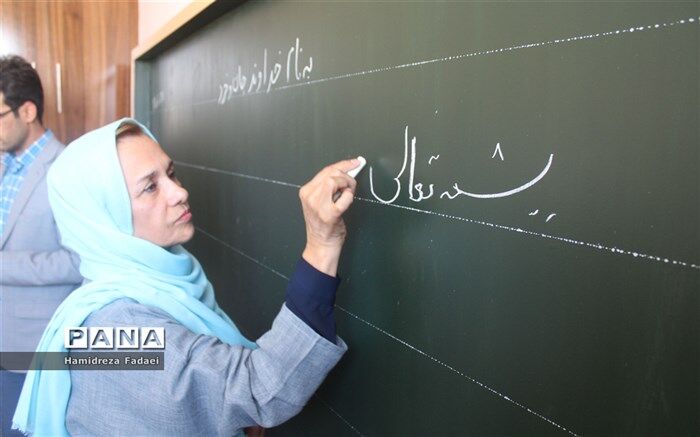 به نام خداوند جان و خرد
بسمه تعالی
PANA
Hamidreza Fadaei